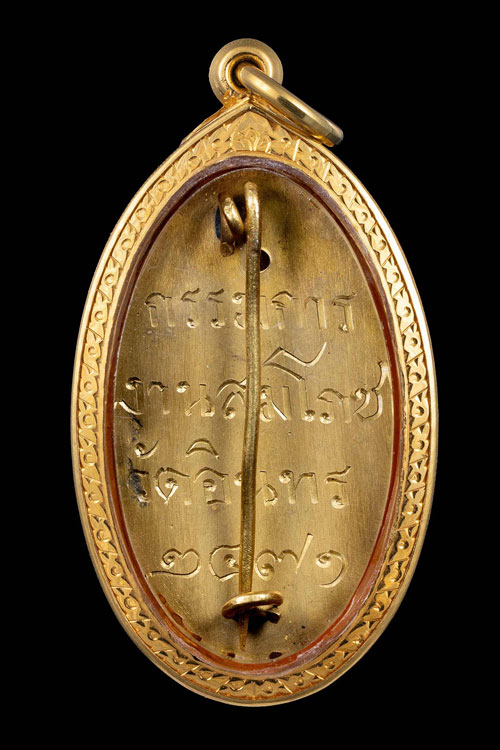 กรรมการ
งานสมโภช
วัดอินทร
๒๔๗๑